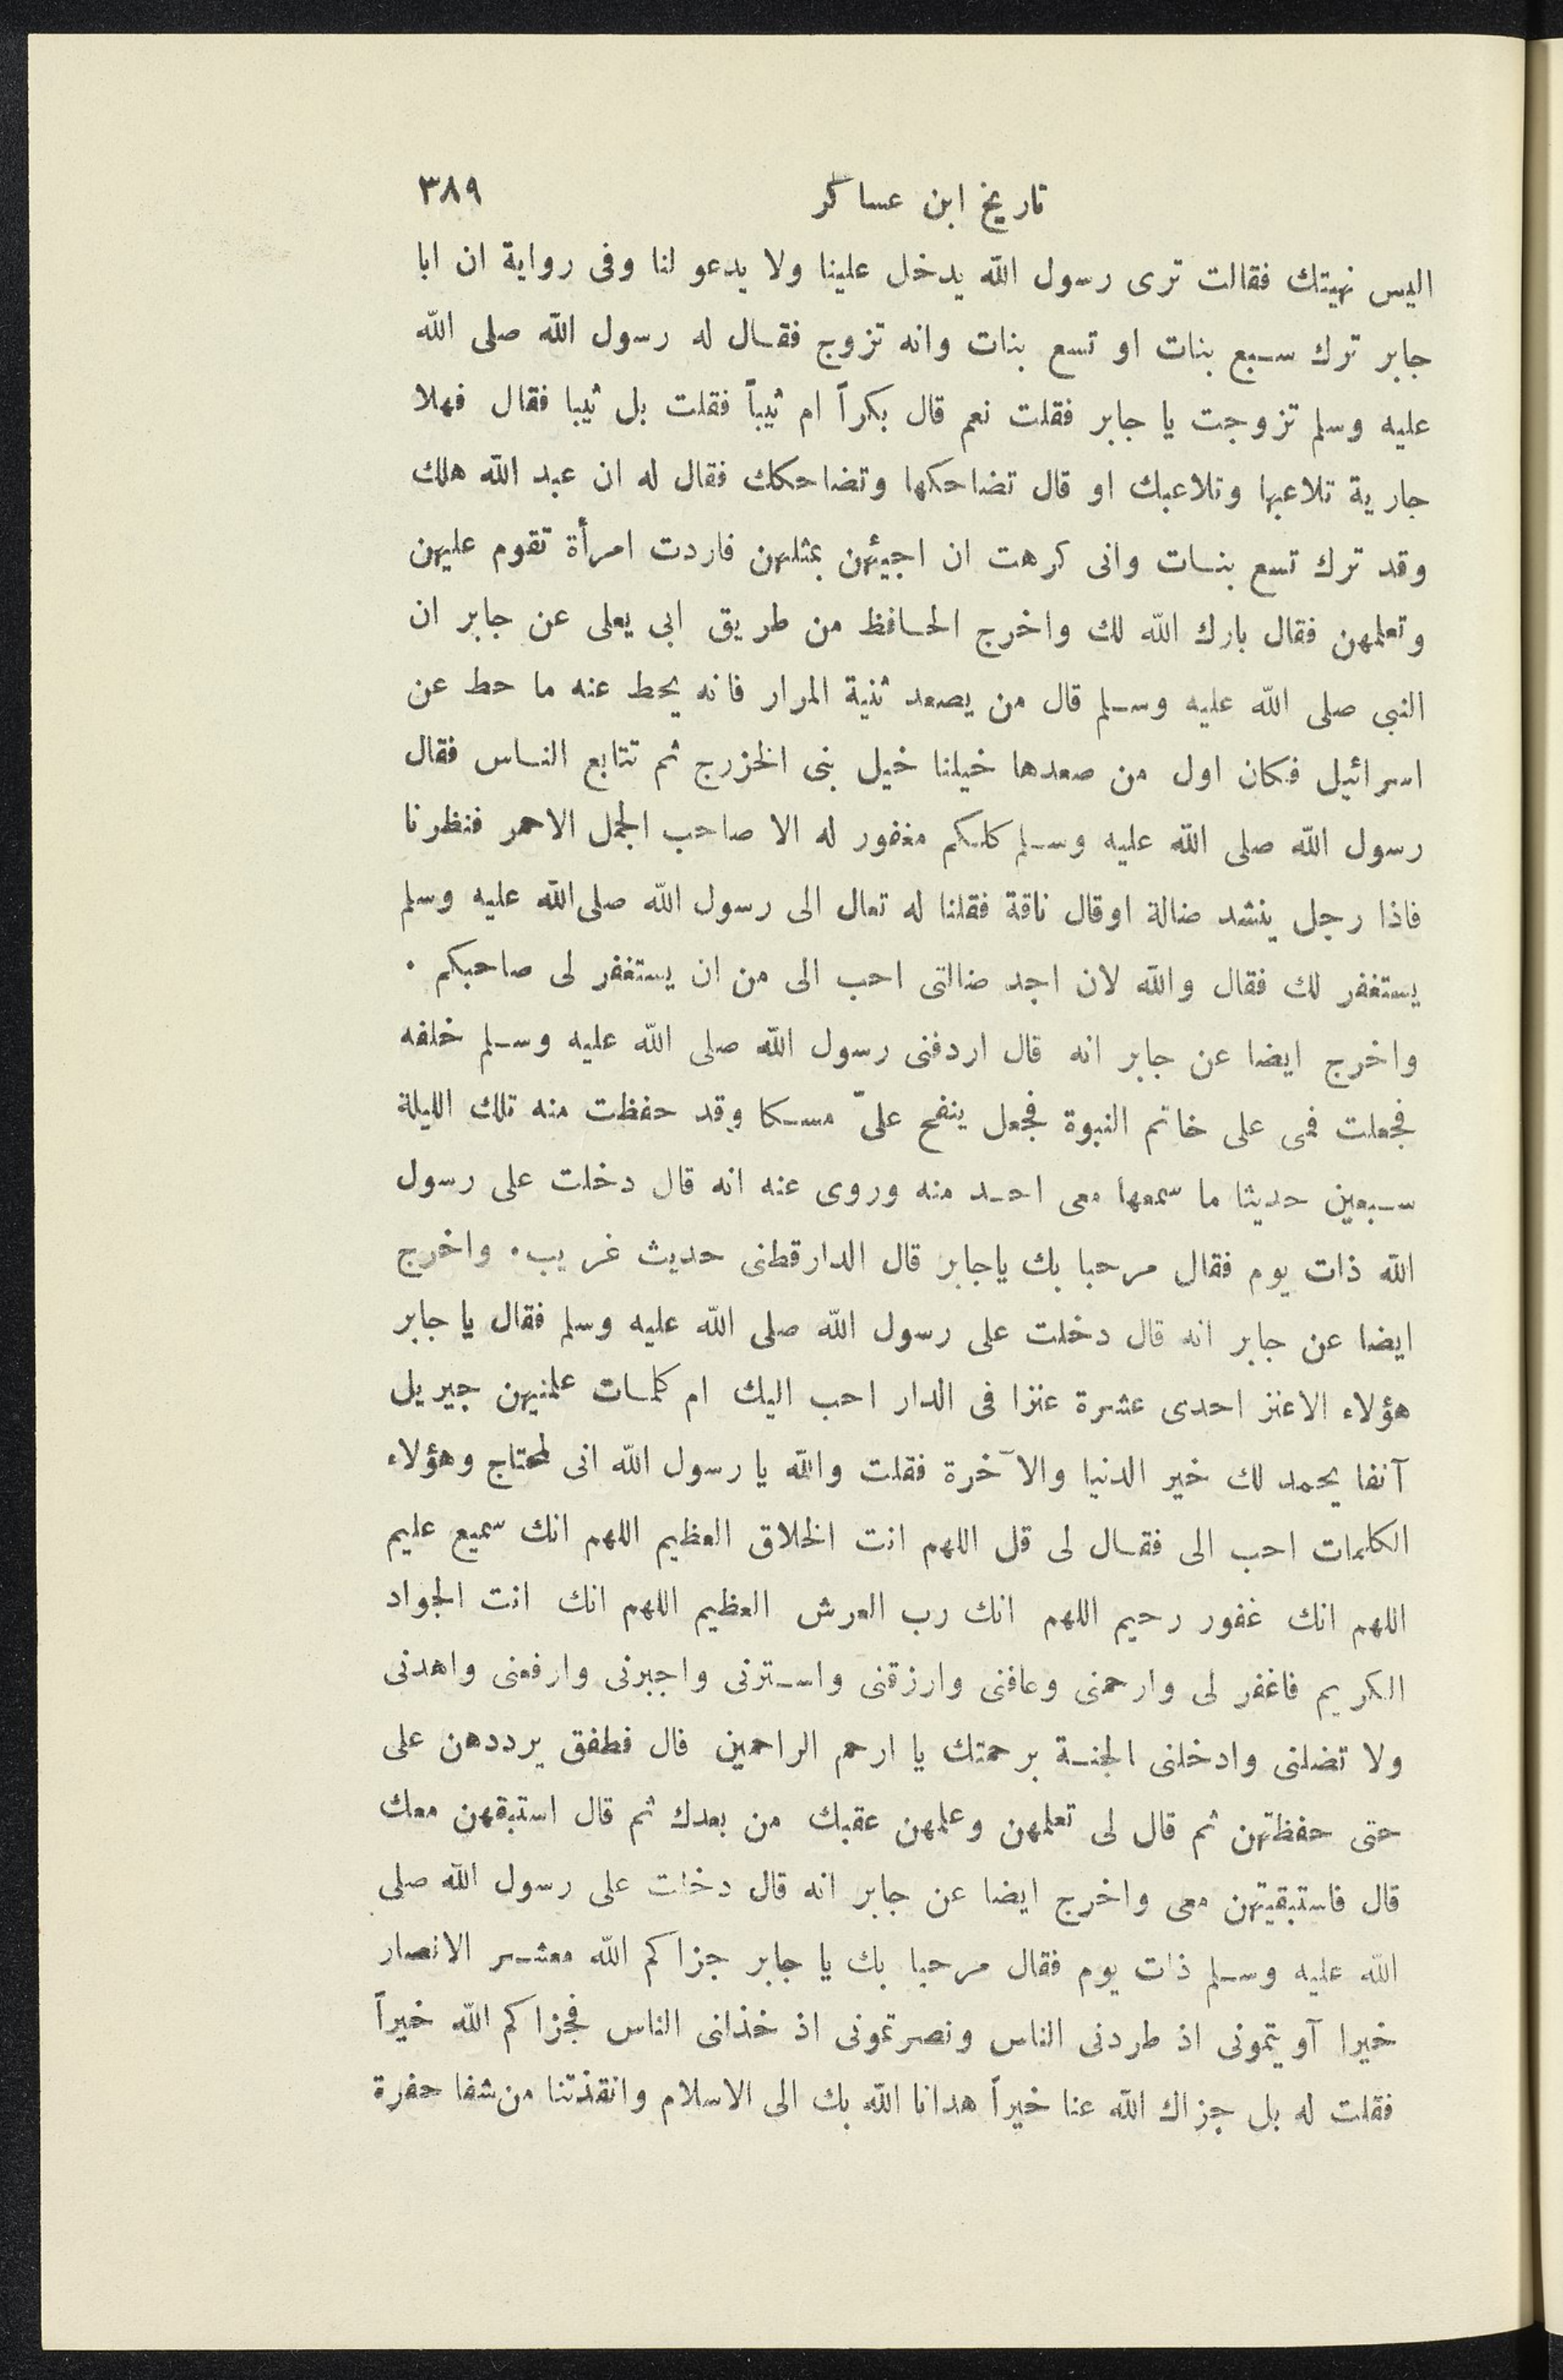 تاريخ ابن عساكر ٣٨٩
اليس نهيتك فقالت ترى رسول الله يدخل علينا ولا يدعو لنا وفى رواية ان ابا
جابر ترك سبع بنات او تسع بنات وانه تزوج فقال له رسول الله صلى الله
عليه وسلم تزوجت يا جابر فقلت نعم قال بكراً ام ثيباً فقلت بل ثيبا فقال فهلا
جارية تلاعبها وتلاعبك او قال تضاحكها وتضاحكك فقال له ان عبد الله هلك
وقد ترك تسع بنات وانى كرهت ان اجيئهن بمثلهن فاردت امرأة تقوم عليهن
وتعلمهن فقال بارك الله لك واخرج الحافظ من طريق ابى يعلى عن جابر ان
النبى صلى الله عليه وسلم قال من يصعد ثنية المرار فانه يحط عنه ما حط عن
اسرائيل فكان اول من صعدها خيلنا خيل بنى الخزرج ثم تتابع الناس فقال
رسول الله صلى الله عليه وسلم كلكم مغفور له الا صاحب الجمل الاحمر فنظرنا
فاذا رجل ينشد ضالة اوقال ناقة فقلنا له تعال الى رسول الله صلى الله عليه وسلم
يستغفر لك فقال والله لان اجد ضالتى احب الى من ان يستغفر لى صاحبكم ٠
واخرج ايضا عن جابر انه قال اردفنى رسول الله صلى الله عليه وسلم خلفه
فجعلت فمى على خاتم النبوة فجعل ينفح علىّ مسكا وقد حفظت منه تلك الليلة
سبعين حديثا ما سمعها معى احد منه وروى عنه انه قال دخلت على رسول
الله ذات يوم فقال مرحبا بك ياجابر قال الدارقطنى حديث غريب ٠ واخرج
ايضا عن جابر انه قال دخلت على رسول الله صلى الله عليه وسلم فقال يا جابر
هؤلاء الاعنز احدى عشرة عنزا فى الدار احب اليك ام كلمات علمنيهن جبريل
آنفا يحمد لك خير الدنيا والآخرة فقلت والله يا رسول الله انى لمحتاج وهؤلاء
الكلمات احب الى فقال لى قل اللهم انت الخلاق العظيم اللهم انك سميع عليم
اللهم انك غفور رحيم اللهم انك رب العرش العظيم اللهم انك انت الجواد
الكريم فاغفر لى وارحمنى وعافنى وارزقنى واسترنى واجبرنى وارفعنى واهدنى
ولا تضلنى وادخلنى الجنة برحمتك يا ارحم الراحمين قال فطفق يرددهن على
حتى حفظتهن ثم قال لى تعلمهن وعلمهن عقبك من بعدك ثم قال استبقهن معك
قال فاستبقيتهن معى واخرج ايضا عن جابر انه قال دخلت على رسول الله صلى
الله عليه وسلم ذات يوم فقال مرحبا بك يا جابر جزاكم الله معشر الانصار
خيرا آويتمونى اذ طردنى الناس ونصرتمونى اذ خذلنى الناس فجزاكم الله خيراً
فقلت له بل جزاك الله عنا خيراً هدانا الله بك الى الاسلام وانقذتنا من شفا حفرة